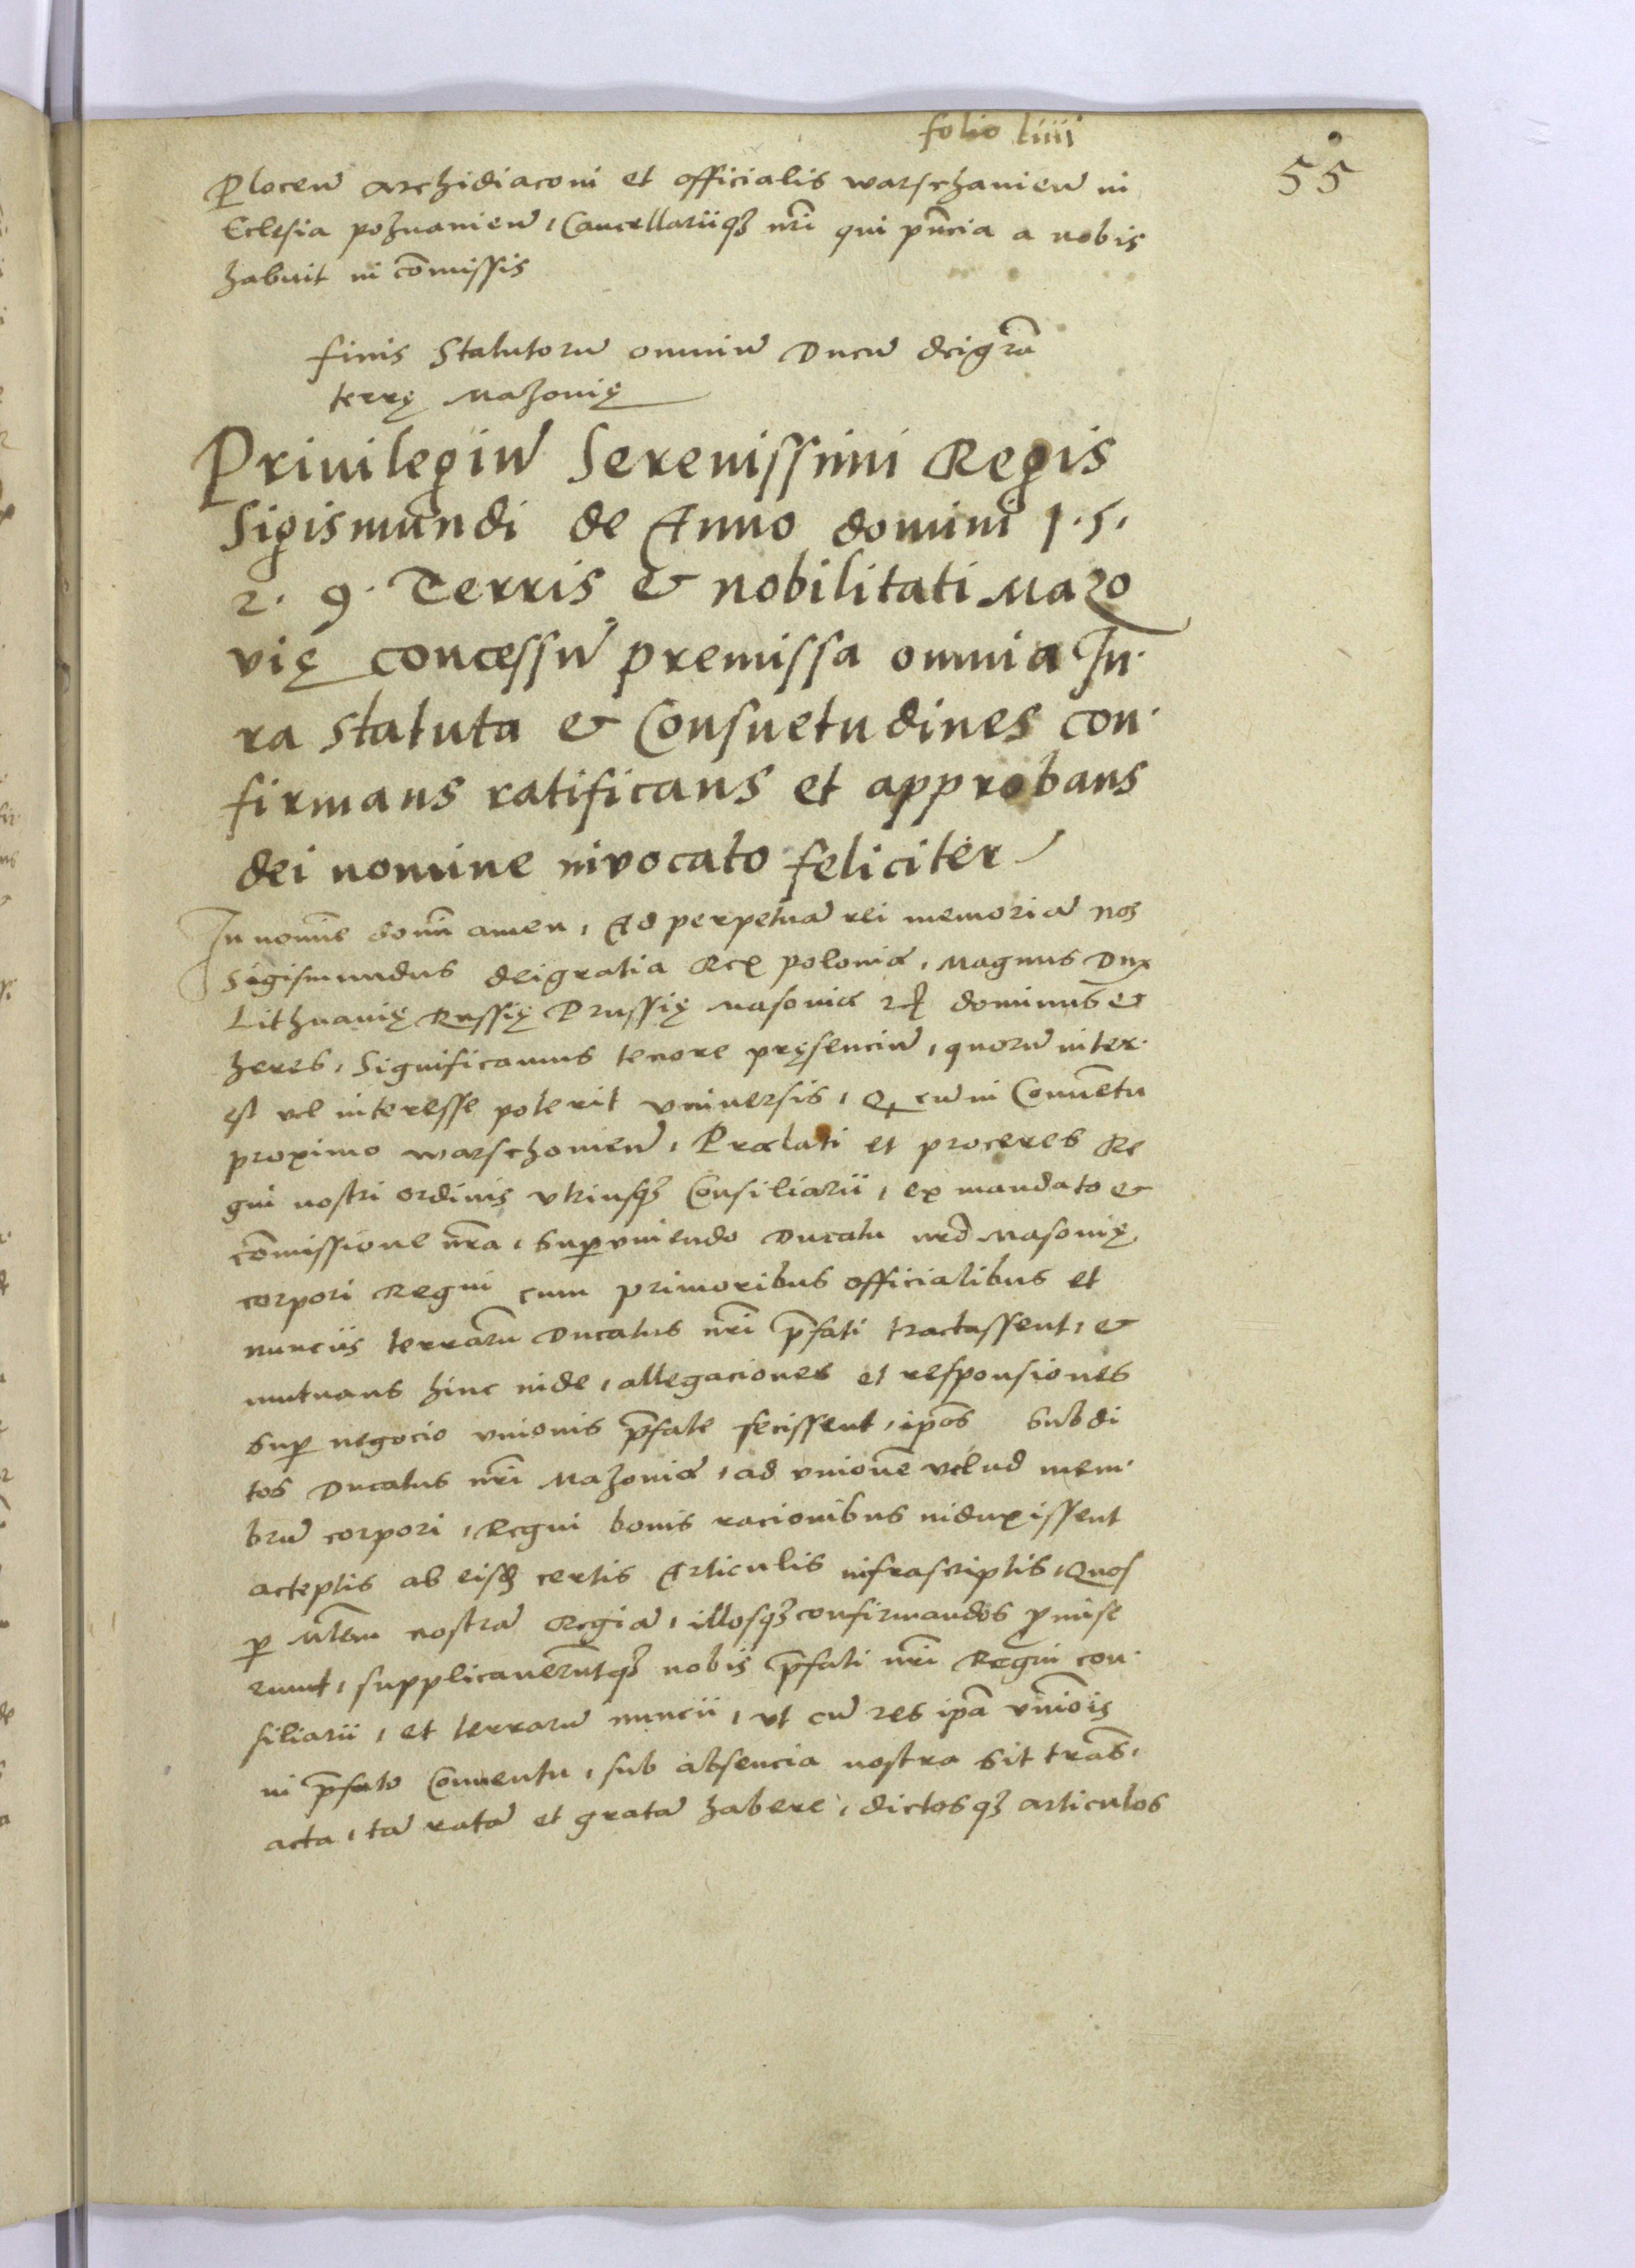 folio liiii
55
Plocen̄ Archidiaconi et officialis warschauien̄ in
Eclesia poznanien̄, Cancellariiqȝ nr̄i qui pn̄cia a nobis
habuit in com̄issis
finis Statutorū omniū Ducū deigrā
terrę Mazouię
Priuilegiū Serenissimi Regis
Sigismundi de Anno domini 1.5.
2.9. Terris & nobilitati Mazo
vię concessū premissa omnia Iu
ra statuta & Consuetudines con
firmans ratificans et approbans
dei nomine invocato feliciter
In nomīe domī amen, Ad perpetuā rei memoriā nos
Sigismundus deigratia Rex poloniæ, Magnus Dux
Lithuanię Russię Prussię Masouiæ ⁊c̄ dominus &
heres, Significamus tenore pręsenciū, quorū inter
est vel interesse poterit vniuersis, Qꝫ cum in Conuētu
proximo warschouien̄, Prælati et proceres Re
gni nostri ordinis vtriusqȝ Consiliarii, ex mandato &
com̄issione nr̄a, super vniendo Ducatu nr̄o Masouię
corpori Regni cum primoribus officialibus et
nunciis terrarū Ducatus nr̄i p̄fati tractassent, &
mutuans hinc inde, allegaciones et responsiones
suꝑ negocio vnionis p̄fate fecissent, ip̄os subdi
tos Ducatus nr̄i Mazouiæ, ad vnionē velud mem
brū corpori, Regni bonis racionibus induxissent
acteptis ab eisdꝫ certis Articulis infrascriptis, Quos
ꝑ Mt̄em nostrā Regiā, illosqȝ confirmandos ꝓmise
runt, supplicauerūtqȝ nobis p̄fati nr̄i Regni con
siliarii, et terrarū nuncii, vt cū res ip̄a vniōis
in p̄fato Conuentu, sub absencia nostra sit trās
acta, tā ratā et gratā habere, dictosqȝ articulos